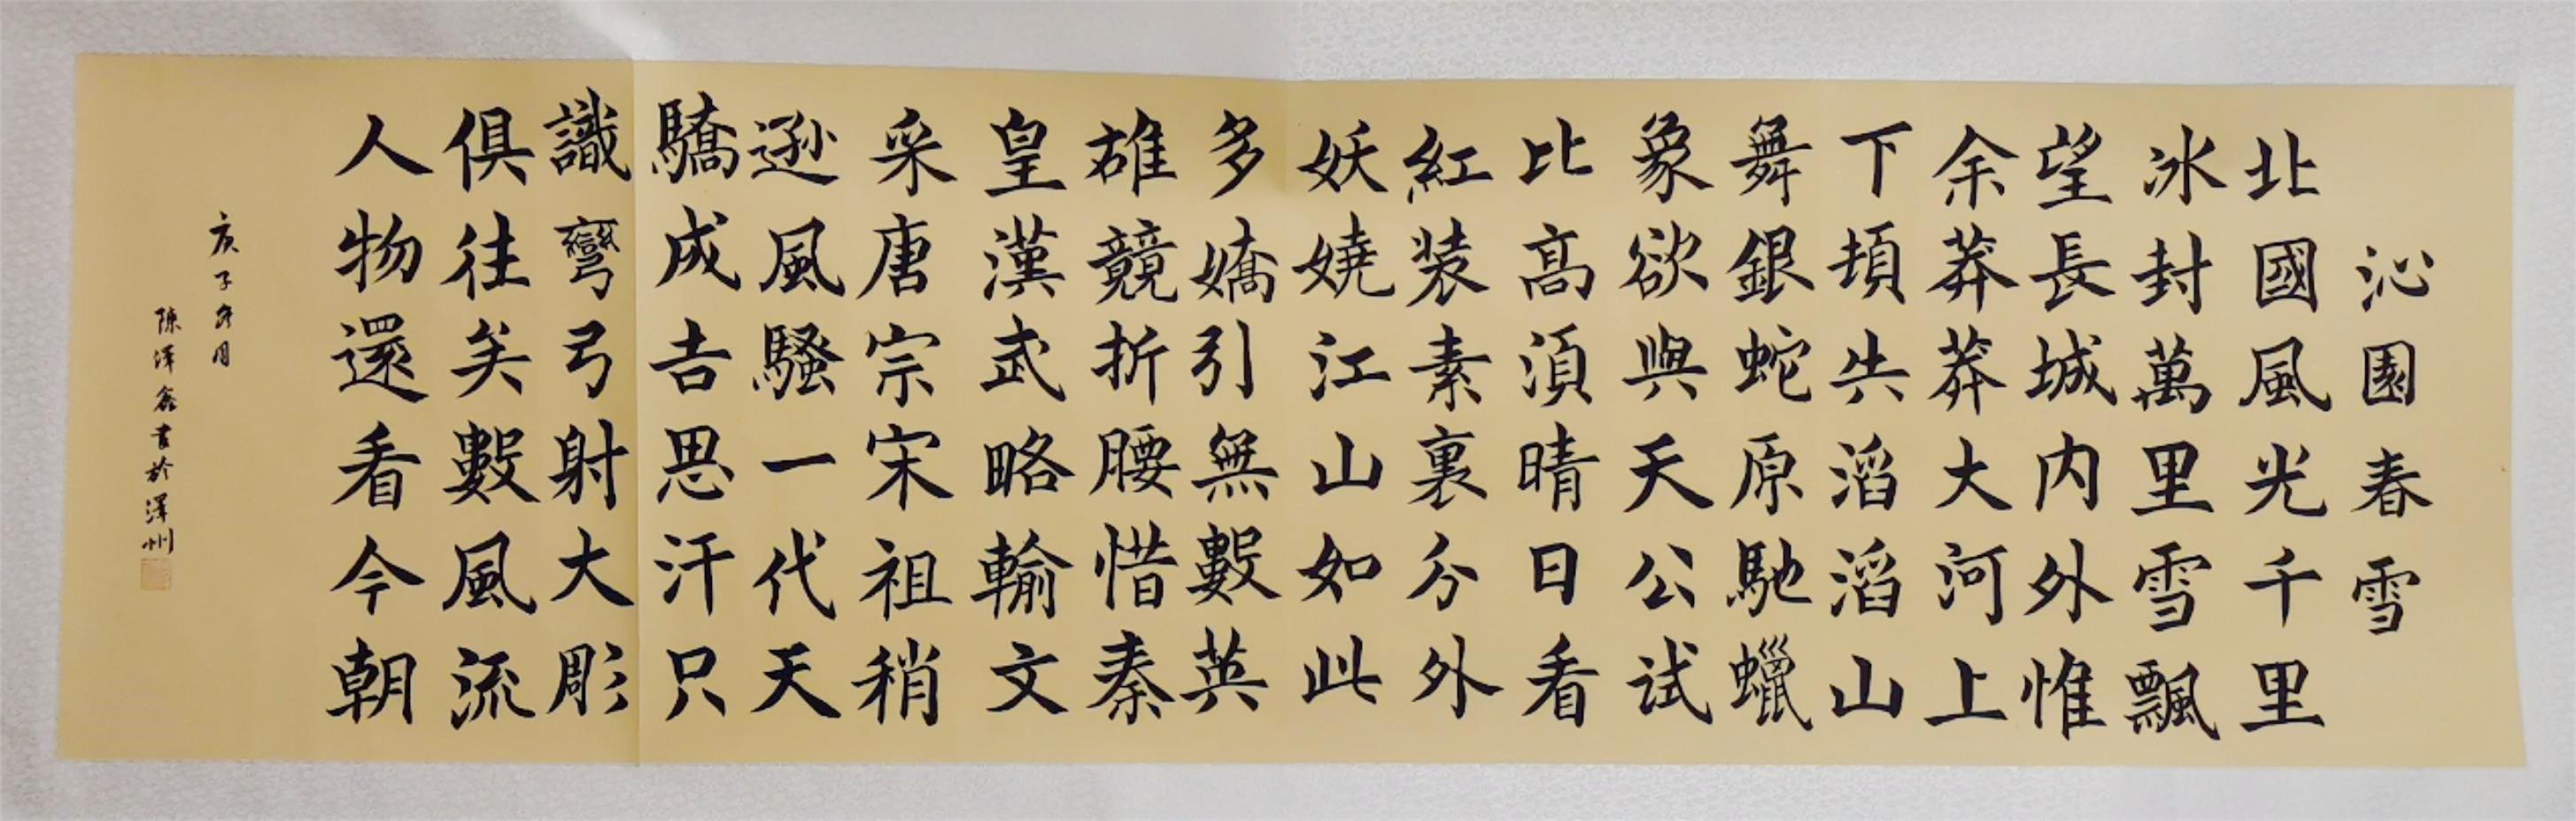 沁園春雪
北國風光千里
冰封萬里雪飄
望長城内外惟
余莽莽大河上
下頓失滔滔山
舞銀蛇原馳蠟
象欲與天公試
比高湏晴日看
紅装素裏分外
妖嬈江山如此
多嬌引無數英
雄競折腰惜秦
皇漢武略輸文
采唐宗宋祖稍
遜風騷一代天
驕成吉思汗只
識彎弓射大彫
俱往矣數風流
人物還看今朝
庚子冬月
陳澤鑫書於澤州